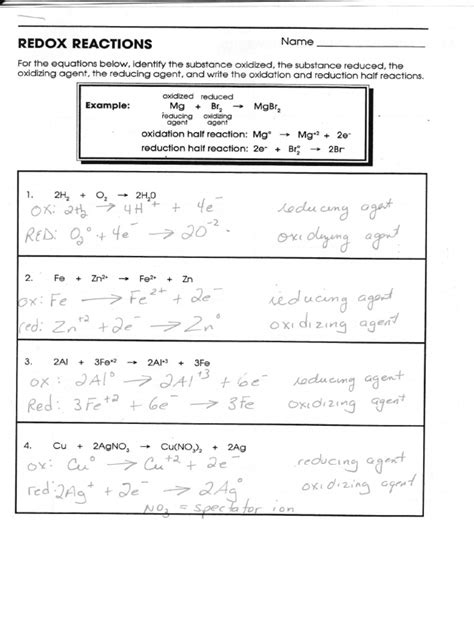 REDOX REACTIONS Name
For the equations below, identify the substance oxidized, the substance reduced, the
oxidizing agent, the reducing agent, and write the oxidation and reduction half reactions.
oxidized reduced
Example: Mg + Br₂ → MgBr₂
reducing oxidizing
agent agent
oxidation half reaction: Mg° → Mg⁺² + 2e⁻
reduction half reaction: 2e⁻ + Br₂° → 2Br⁻
1. 2H₂ + O₂ → 2H₂O
OX: 2H₂ → 4H⁺ + 4e⁻ reducing agent
RED: O₂° + 4e⁻ → 2O⁻² oxidizing agent
2. Fe + Zn²⁺ → Fe²⁺ + Zn
ox: Fe → Fe²⁺ + 2e⁻ reducing agent
red: Zn⁺² + 2e⁻ → Zn° oxidizing agent
3. 2Al + 3Fe⁺² → 2Al⁺³ + 3Fe
ox: 2Al° → 2Al⁺³ + 6e⁻ reducing agent
Red: 3Fe⁺² + 6e⁻ → 3Fe oxidizing agent
4. Cu + 2AgNO₃ → Cu(NO₃)₂ + 2Ag
ox: Cu° → Cu⁺² + 2e⁻ reducing agent
red: 2Ag⁺ + 2e⁻ → 2Ag° oxidizing agent
NO₃ = spectator ion